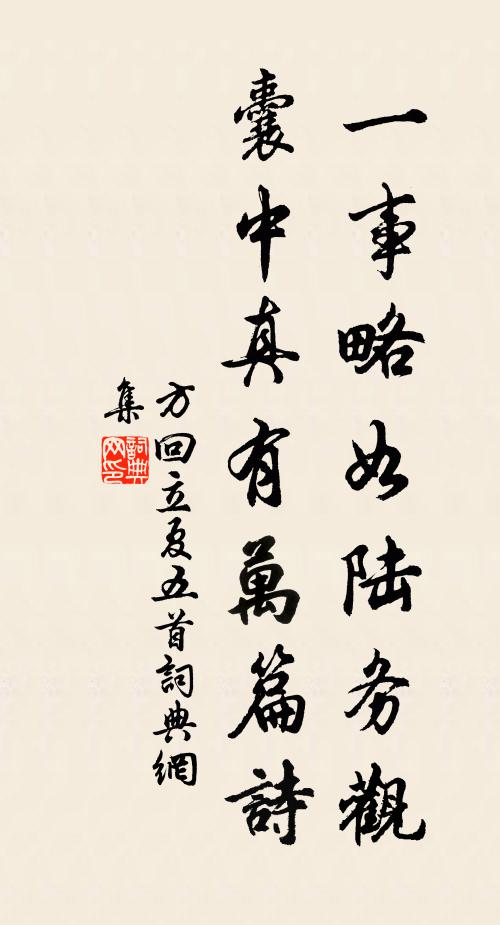 一事略如陆务觀
囊中真有萬篇詩
方回立夏五首詞典網
集
詞典网印